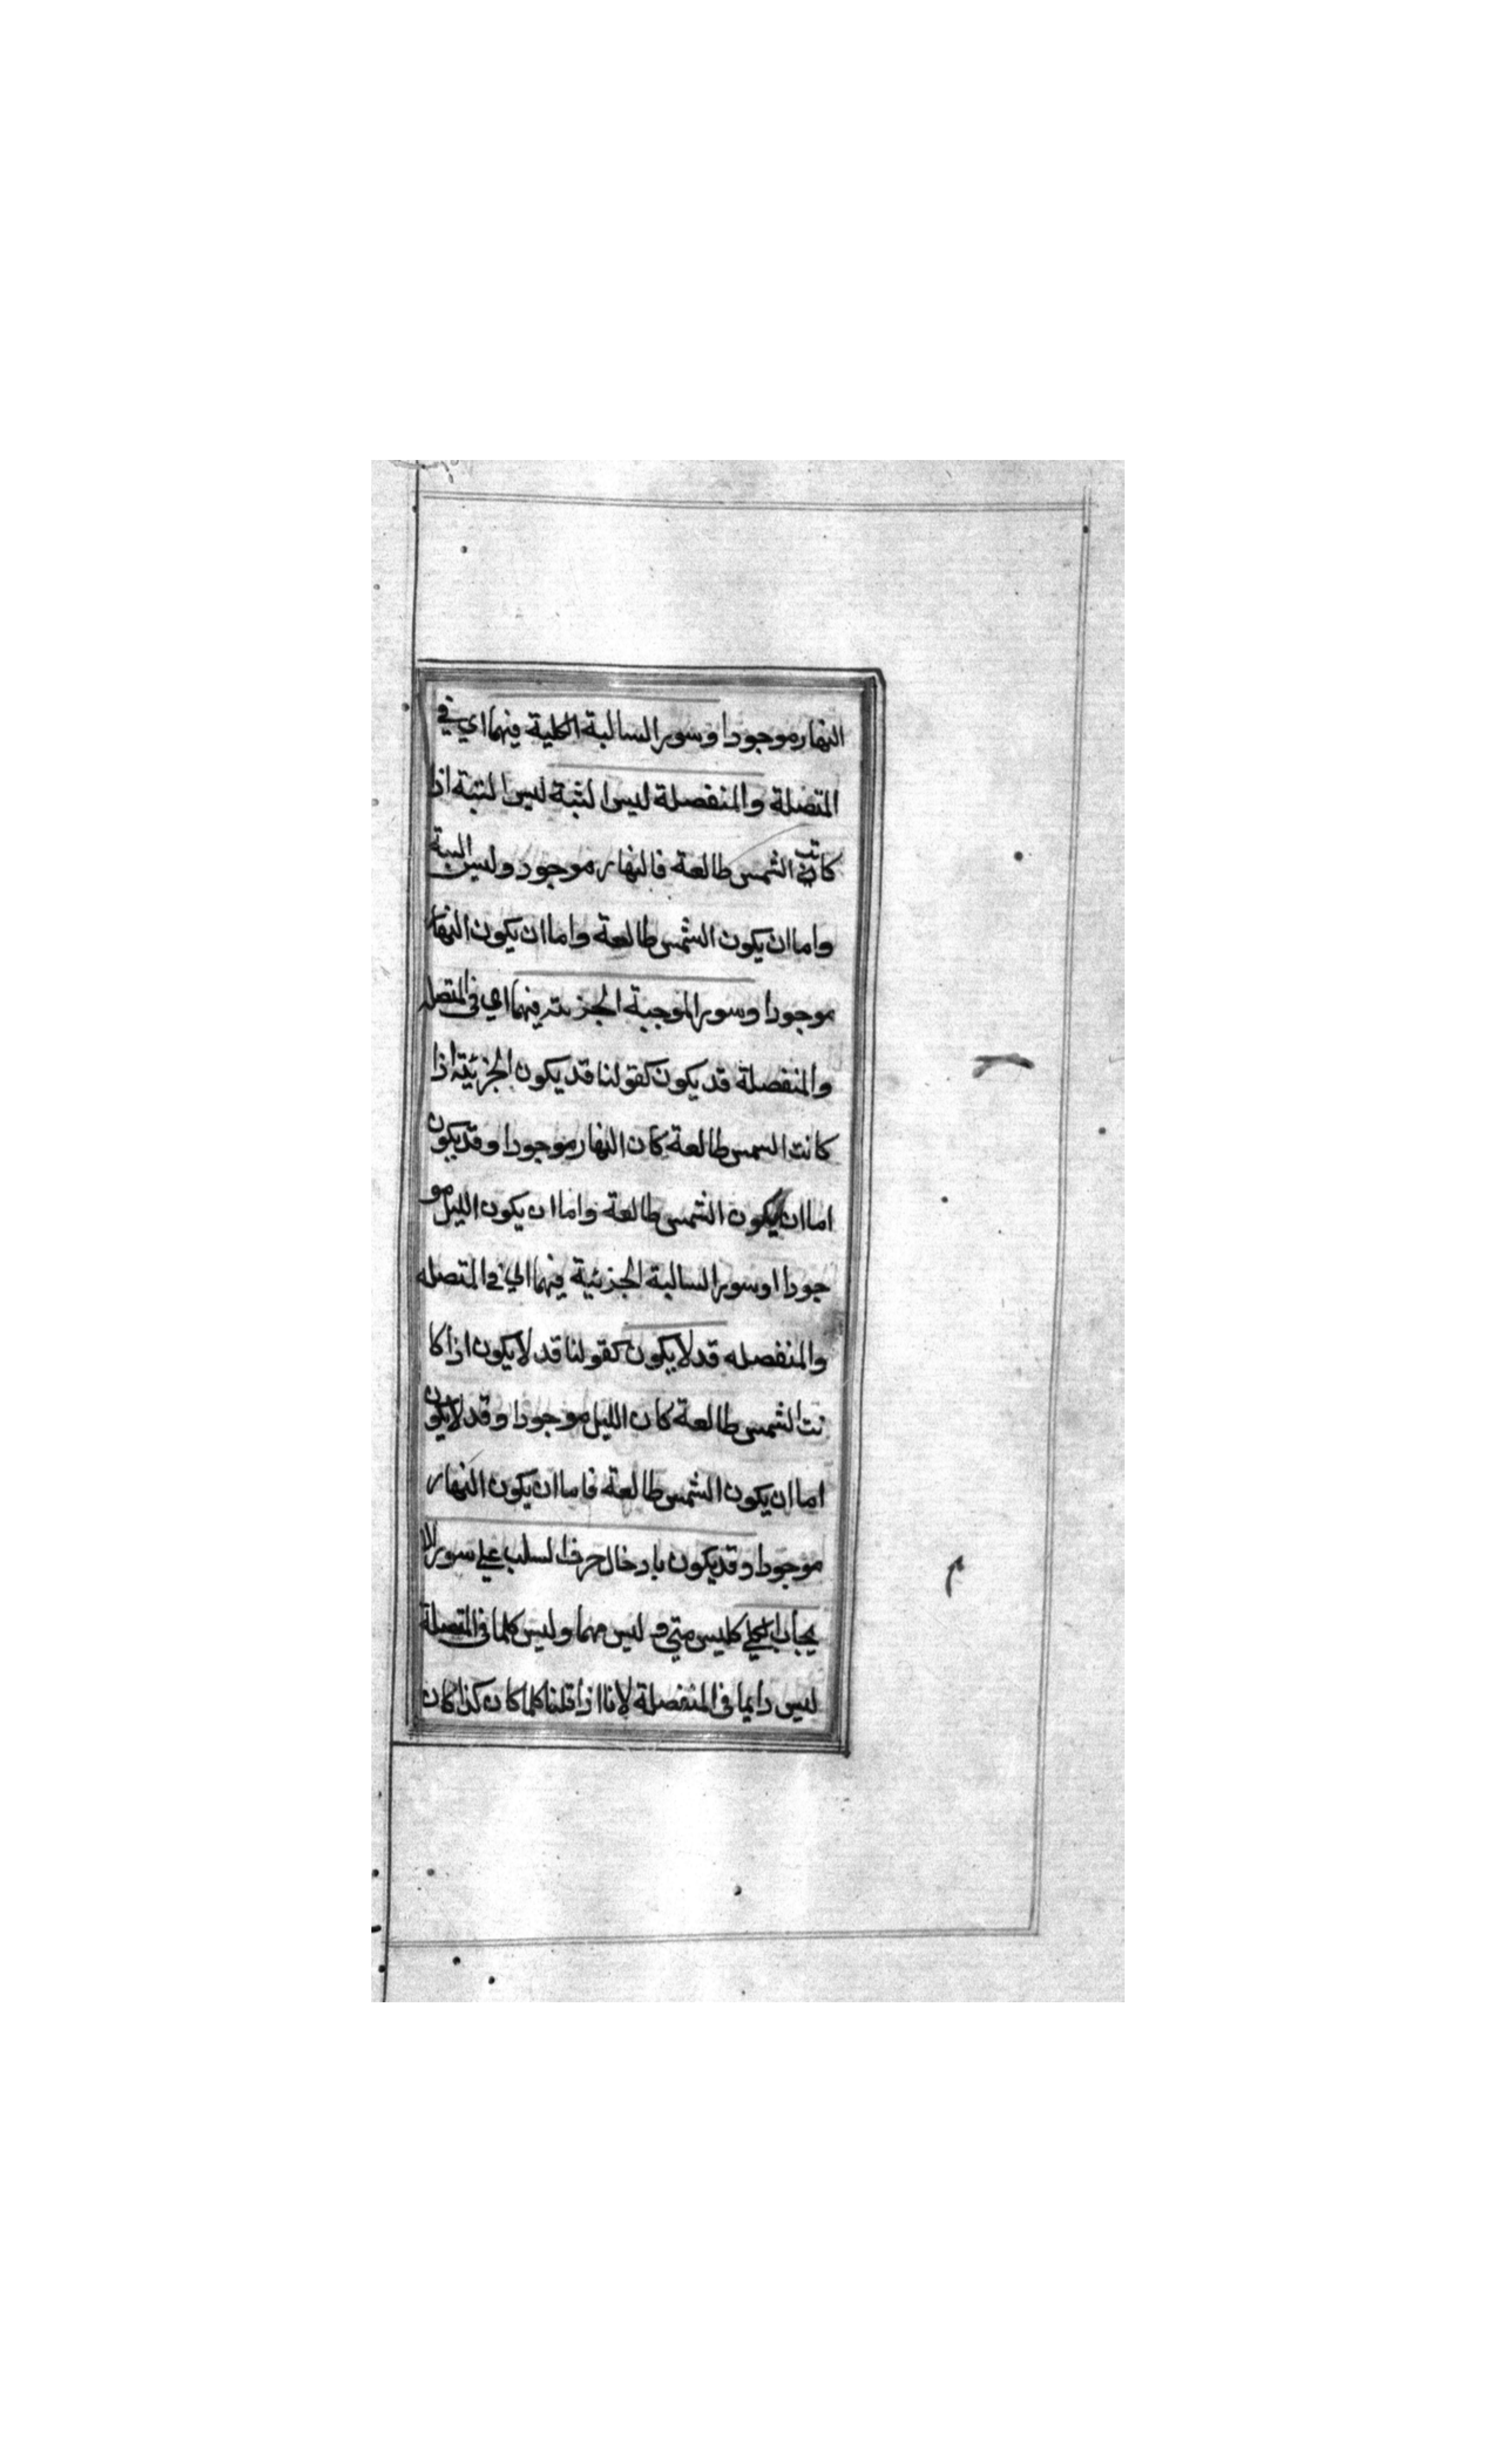 النهار موجودا وسور السالبة الكلية فيهما اي في
المتصلة والمنفصلة ليس البتة ليس البتة اذا
كانت الشمس طالعة فالنهار موجود وليس البتة
واما ان يكون الشمس طالعة واما ان يكون النهار
موجودا وسور الموجبة الجزئية فيهما اي في المتصله
والمنفصلة قد يكون كقولنا قد يكون الجزئية اذا
كانت الشمس طالعة كان النهار موجودا وقد يكون
اما ان يكون الشمس طالعة واما ان يكون الليل مو
جودا وسور السالبة الجزئية فيهما اي في المتصله
والمنفصله قد لا يكون كقولنا قد لا يكون اذا كا
نت الشمس طالعة كان الليل موجودا وقد لا يكون
اما ان يكون الشمس طالعة فاما ان يكون النهار
موجودا وقد يكون بادخال حرف السلب علي سور الا
يجاب الكلي كليس متي وليس مهما وليس كلما في المتصلة
ليس دايما في المنفصلة لانا اذا قلنا كلما كان كذا كان